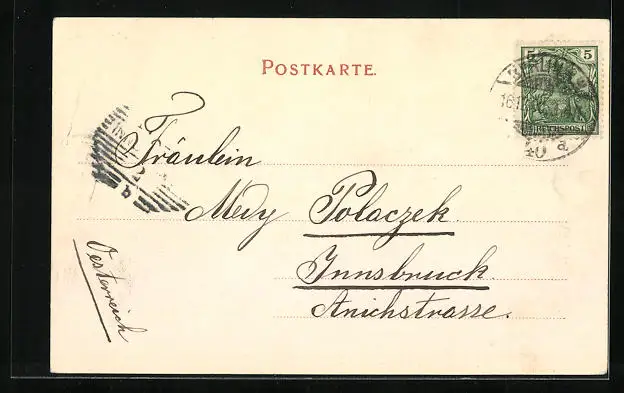 POSTKARTE.
5 5
REICHSPOST
Fräulein
Medy Polaczek
Innsbruck
Anichstrasse.
Oesterreich